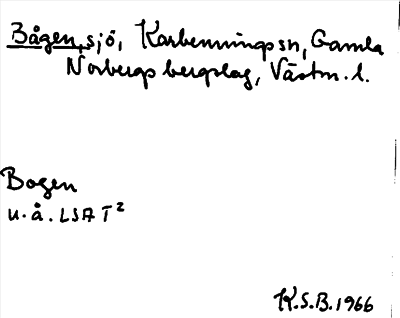 Bågen, sjö, Karbennings sn, Gamla
Norbergs bergslag, Västm. l.
Bogen
u.å. LSA T²
K.S.B. 1966